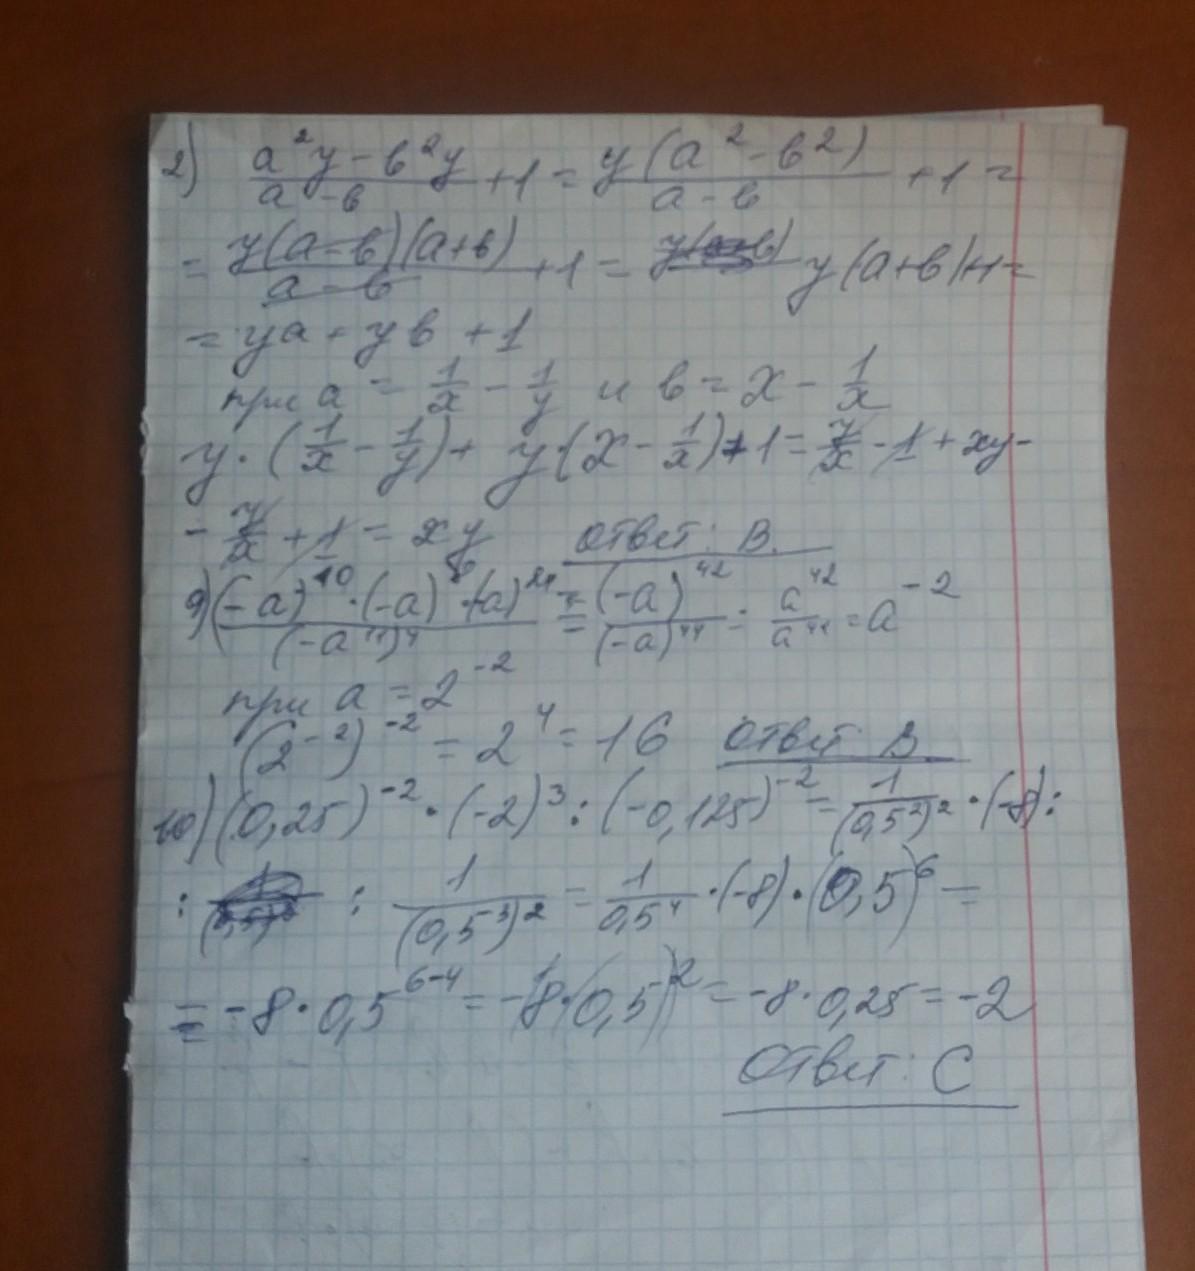 2) (a²y - b²y)/(a - b) + 1 = y(a² - b²)/(a - b) + 1 =
= y(a - b)(a + b)/(a - b) + 1 = y(a + b) + 1 =
= ya + yb + 1
при a = 1/x - 1/y и b = x - 1/x
y · (1/x - 1/y) + y(x - 1/x) + 1 = y/x - 1 + xy -
- y/x + 1 = xy ответ: В.
9) (-a)¹⁰ · (-a)⁸ · (-a)²⁴ / (-a¹¹)⁴ = (-a)⁴²/(-a)⁴⁴ = a⁴²/a⁴⁴ = a⁻²
при a = 2⁻²
(2⁻²)⁻² = 2⁴ = 16 ответ В
10) (0,25)⁻² · (-2)³ : (-0,125)⁻² = 1/(0,5²)² · (-8) :
: 1/(0,5³)² = 1/0,5⁴ · (-8) · (0,5)⁶ =
= -8 · 0,5⁶⁻⁴ = -8 · (0,5)² = -8 · 0,25 = -2
Ответ: С